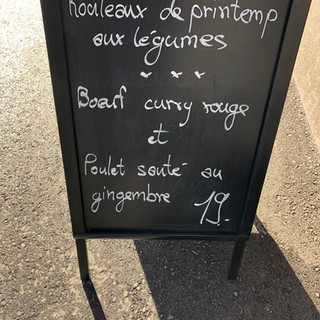 Rouleaux de printemp
aux légumes
Boeuf curry rouge
et
Poulet sauté au
gingembre 19.-